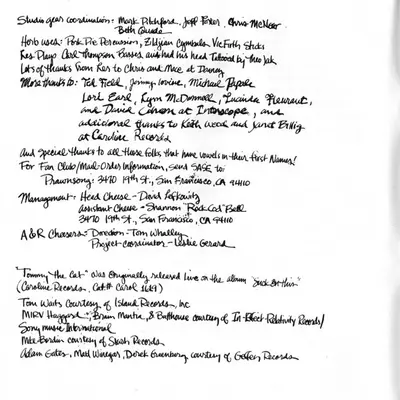 Studio gear coordination: Mark Pitchford, Jeff Porter, Chris McHeer
Beth Quade
Herb uses: Pork Pie Percussion, Zildjian Cymbals, Vic Firth Sticks
Les Plays Carl Thompson Basses and had his head Tattooed by
Lots of thanks from Les to Chris and Mace at Dewey
More thanks to: Ted Field, Jimmy Iovine, Michael
Lord Earl, Lynn McDonnell, Lucinda
and David Cohen at Interscope, and
additional thanks to Keith Wood and Janet Billig
at Caroline Records
And Special thanks to all those folks that have vowels in their first Names!
For Fan Club/Mail-Order Information, send SASE to:
Prawnsong: 3470 19th St., San Francisco, CA 94110
Management: Head Cheese - David Lefkowitz
assistant Cheese - Shannon "Rock Cod" Bell
3470 19th St., San Francisco, CA 94110
A&R Chasers: Direction - Tom Whalley
Project-coordinator - Leslie Gerard
"Tommy the Cat" was originally released live on the album "Suck On This"
(Caroline Records, Cat# Carol 1619)
Tom Waits courtesy of Island Records, Inc
MIRV Haggard, Brain Mantia, & Buthouse courtesy of In-Effect/Relativity Records/
Sony music International
Mike Bordin courtesy of Slash Records
Adam Gates, Matt Winegar, Derek Greenberg courtesy of Geffen Records